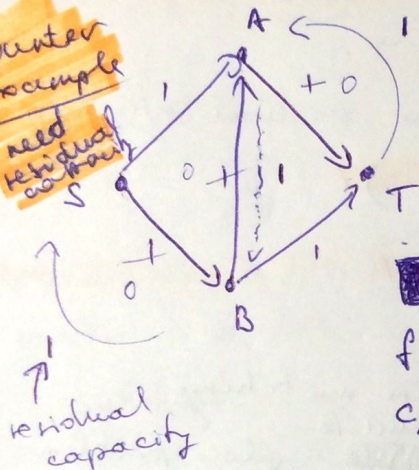 unter
xample
need
residual
capacity
A
1
1
+ 0
0 + 1
S
T
1 0
1
B
f
1
c,
residual
capacity